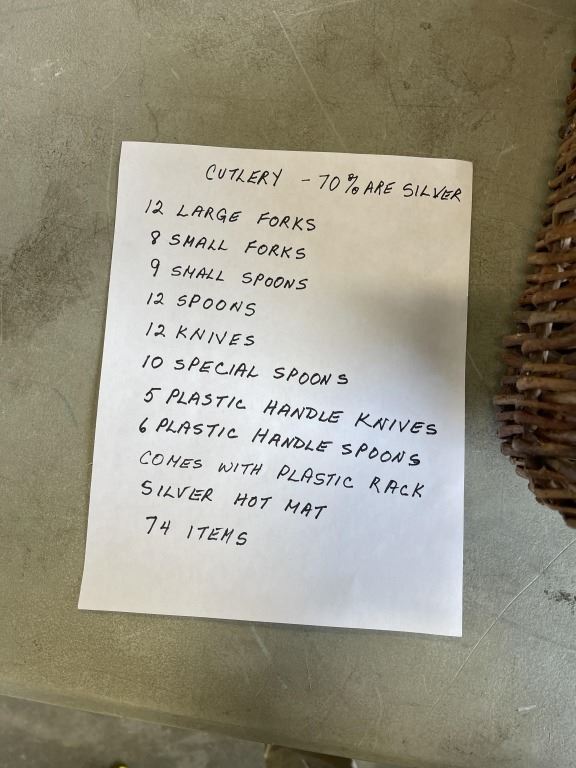 CUTLERY - 70% ARE SILVER
12 LARGE FORKS
8 SMALL FORKS
9 SMALL SPOONS
12 SPOONS
12 KNIVES
10 SPECIAL SPOONS
5 PLASTIC HANDLE KNIVES
6 PLASTIC HANDLE SPOONS
COMES WITH PLASTIC RACK
SILVER HOT MAT
74 ITEMS